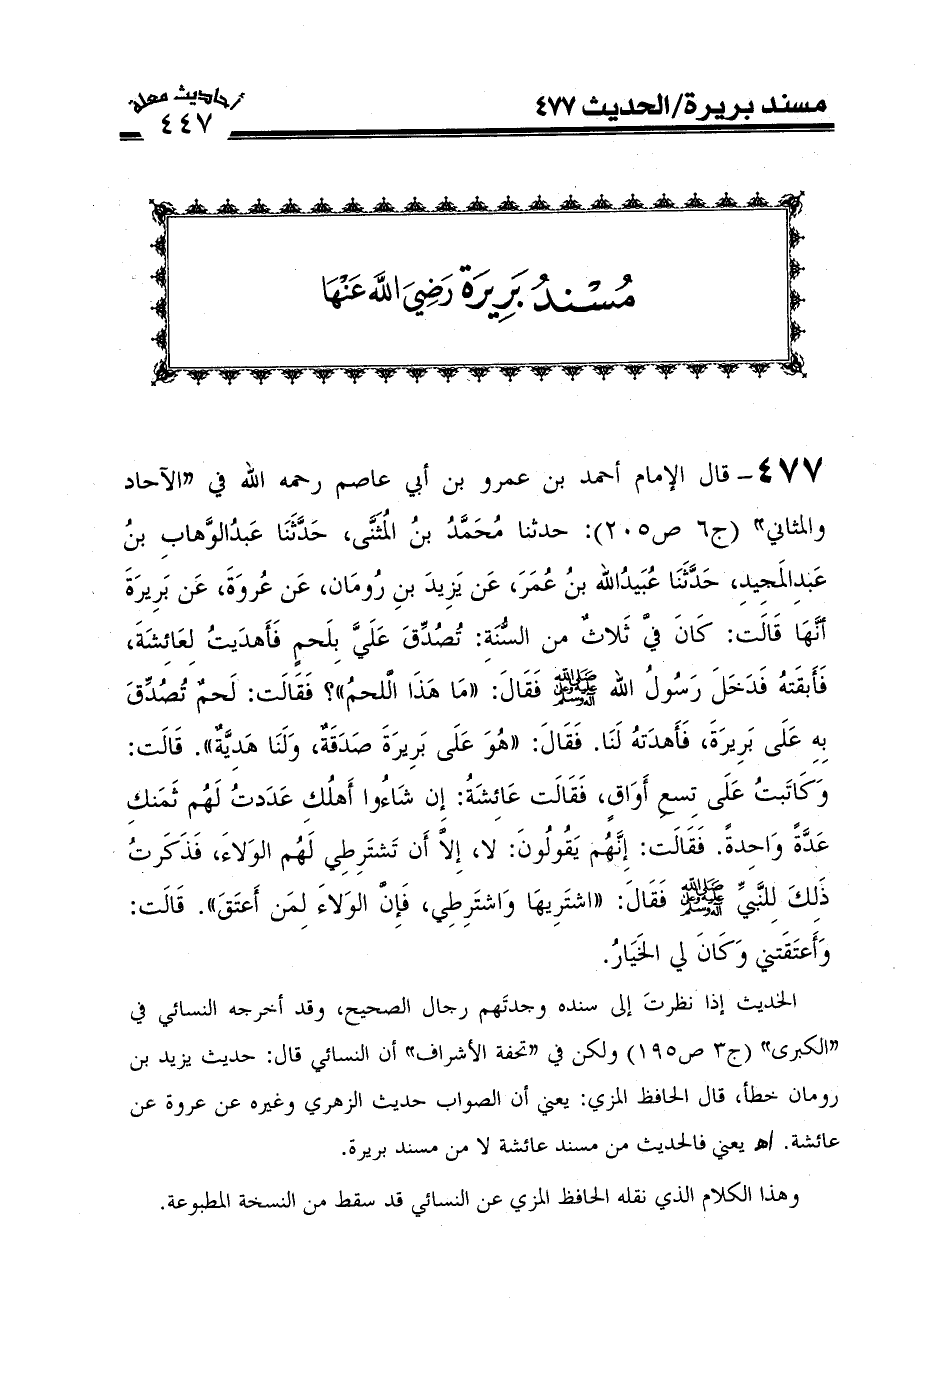 مسند بريرة/الحديث ٤٧٧
أحاديث معلة
٤٤٧
مُسْنَدُ بَرِيرَةَ رَضِيَ اللَّهُ عَنْهَا
٤٧٧- قال الإمام أحمد بن عمرو بن أبي عاصم رحمه الله في «الآحاد
والمثاني» (ج٦ ص٢٠٥): حدثنا مُحَمَّدُ بنُ المُثَنَّى، حَدَّثَنَا عَبدُالوَّهاب بنُ
عَبدِالمَجيدِ، حَدَّثَنَا عُبَيدُالله بنُ عُمَرَ، عَن يَزِيدَ بنِ رُومَان، عَن عُروَةَ، عَن بَرِيرَةَ
أنَّهَا قَالَت: كَانَ فيَّ ثَلاثٌ من السُّنَةِ: تُصُدِّقَ عَلَيَّ بِلَحمٍ فَأَهدَيتُ لِعَائِشَةَ،
فَأَبقَتهُ فَدَخَلَ رَسُولُ الله ﷺ فَقَالَ: «مَا هَذَا اللَحمُ»؟ فَقَالَت: لَحمٌ تُصُدِّقَ
بِهِ عَلَى بَرِيرَةَ، فَأَهدَتهُ لَنَا. فَقَالَ: «هُوَ عَلَى بَرِيرَةَ صَدَقَةٌ، وَلَنَا هَدِيَّةٌ». قَالَت:
وَكَاتَبتُ عَلَى تِسعِ أَوَاقٍ، فَقَالَت عَائِشَةُ: إِن شَاءُوا أَهلُكِ عَدَدتُ لَهُم ثَمَنَكِ
عَدَّةً وَاحِدةً. فَقَالَت: إِنَّهُم يَقُولُونَ: لا، إِلاَّ أَن تَشتَرِطِي لَهُم الوَلاءَ، فَذَكَرتُ
ذَلِكَ لِلنَّبِيِّ ﷺ فَقَالَ: «اشتَرِيهَا وَاشتَرِطِي، فَإِنَّ الوَلاءَ لِمَن أَعتَقَ». قَالَت:
وَأَعتَقَتني وَكَانَ لي الخَيَارُ.
الحديث إذا نظرتَ إلى سنده وجدتَهم رجال الصحيح، وقد أخرجه النسائي في
«الكبرى» (ج٣ ص١٩٥) ولكن في «تحفة الأشراف» أن النسائي قال: حديث يزيد بن
رومان خطأ، قال الحافظ المزي: يعني أن الصواب حديث الزهري وغيره عن عروة عن
عائشة. اﻫ يعني فالحديث من مسند عائشة لا من مسند بريرة.
وهذا الكلام الذي نقله الحافظ المزي عن النسائي قد سقط من النسخة المطبوعة.